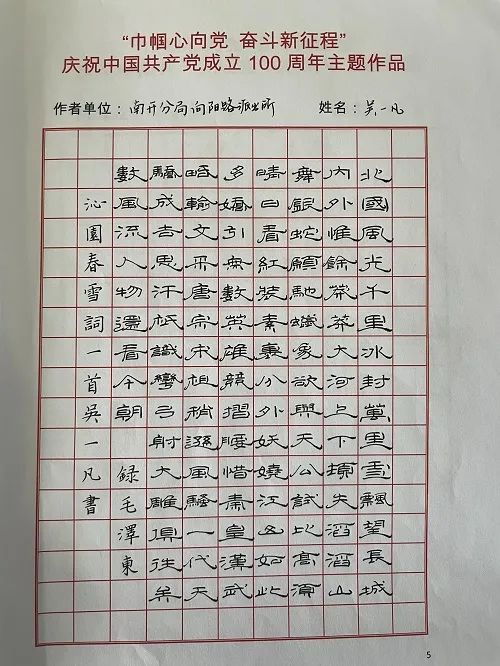 “巾帼心向党 奋斗新征程”
庆祝中国共产党成立 100 周年主题作品
作者单位：南开分局向阳路派出所 姓名：吴一凡
北國風光千里冰封萬里雪飄望長城
內外惟餘莽莽大河上下頓失滔滔山
舞銀蛇願馳蠟象欲與天公試比高須
晴日看紅裝素裹分外妖嬈江山如此
多嬌引無數英雄競摺腰惜秦皇漢武
略輸文采唐宗宋祖稍遜風騷一代天
驕成吉思汗祇識彎弓射大雕俱往矣
數風流人物還看今朝 錄毛澤東
沁園春雪詞一首吳一凡書
5